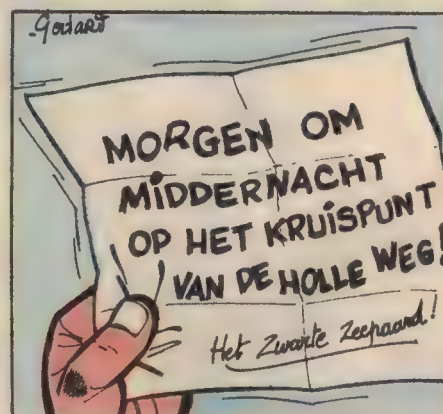 -Godard
MORGEN OM
MIDDERNACHT
OP HET KRUISPUNT
VAN DE HOLLE WEG!
Het Zwarte Zeepaard!